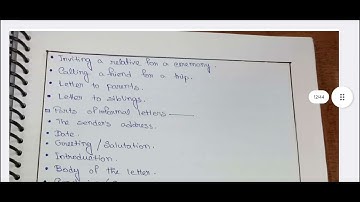 • Inviting a relative for a ceremony.
• Calling a friend for a trip.
• Letter to parents.
• Letter to siblings.
Parts of informal letters —
• The sender's address.
• Date.
• Greeting / Salutation.
• Introduction.
• Body of the letter.
12:44